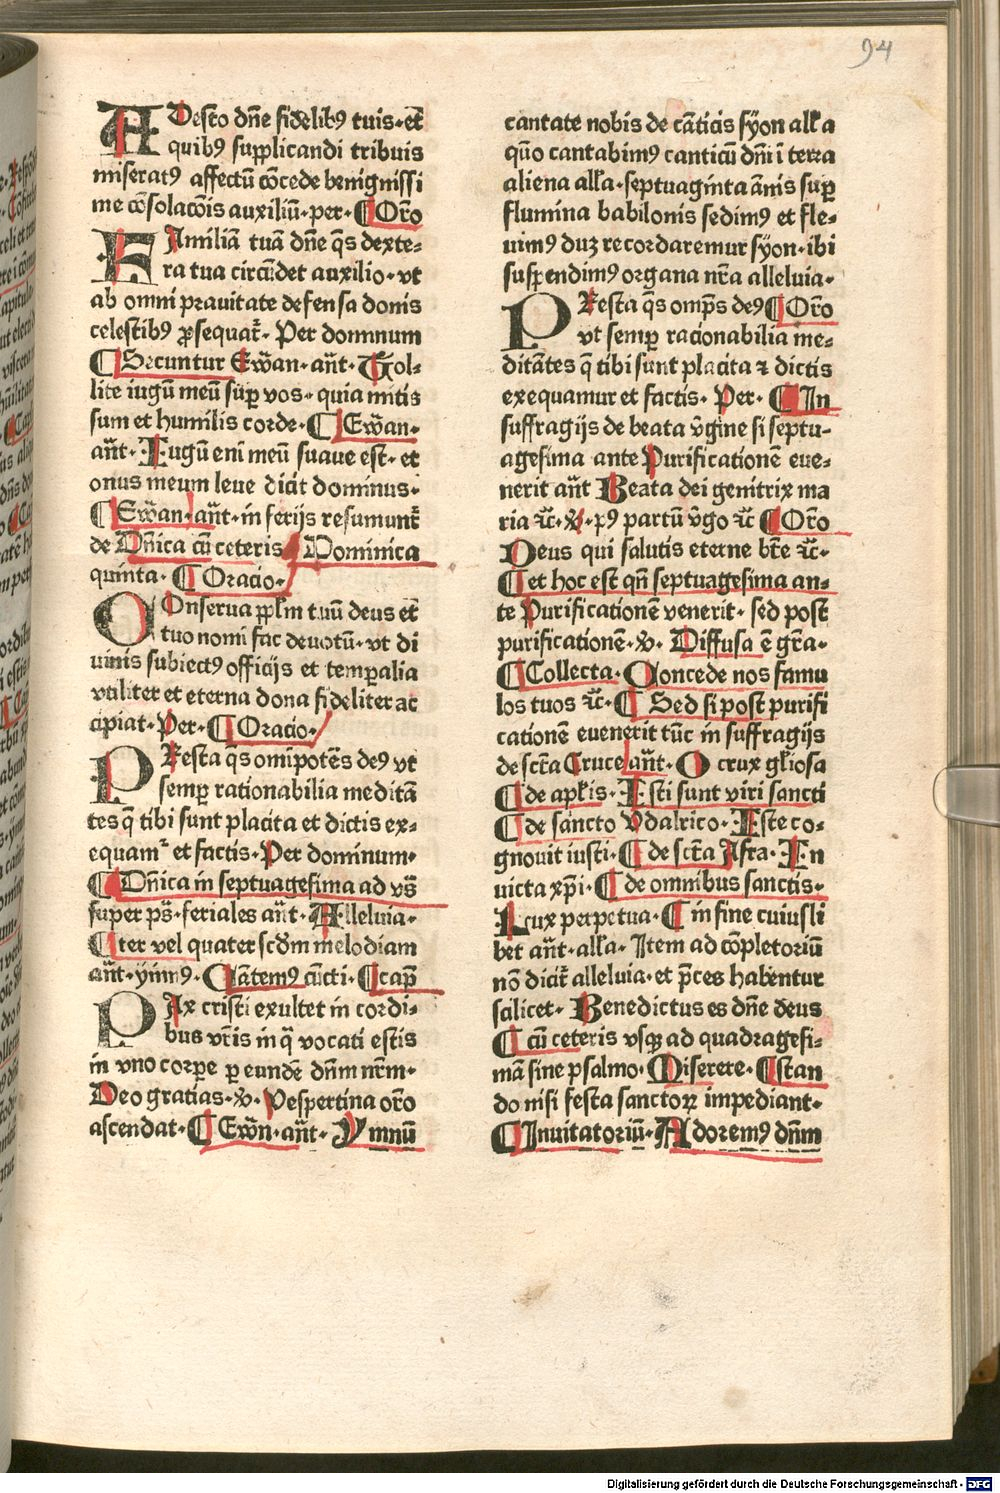 94
ADesto dn̄e fidelibꝰ tuis·et̄
quibꝰ supplicandi tribuis
miseratꝰ affectū cōcede benignissi
me cōsolacōis auxiliū·per·¶Or̄o
FAmiliā tuā dn̄e q̄s dexte⸗
ra tua circūdet auxilio·vt
ab omni prauitate defensa donis
celestibꝰ ꝓsequat̄·Per domnum
¶Secuntur Ew̄an·an̄t·Tol⸗
lite iugū meū sup̄ vos·quia mitis
sum et humilis corde·¶Ew̄an·
an̄t·Iugū eni meū suaue est·et
onus meum leue dicit dominus·
¶Ew̄an·an̄t·in ferijs resumunt̄
de Dn̄ica cū ceteris Dominica
quinta·¶Oracio·
COnserua pp̄lm tuū deus et̄
tuo nomi fac deuotū·vt di
uinis subiectꝰ officijs et temp̄alia
vtiliter et eterna dona fideliter ac
cipiat·Per·¶Oracio·
PResta q̄s om̄ipotēs deꝰ vt
semp̄ rationabilia meditā
tes q̄ tibi sunt placita et dictis ex⸗
equam̄ et factis·Per dominum·
¶Dn̄ica in septuagesima ad vs̄
super ps̄·feriales an̄t·Alleluia·
¶ter vel quater scd̄m melodiam
an̄t·ymnꝰ·Cātemꝰ cūcti·¶cap̄
PAx cristi exultet in cordi⸗
bus vr̄is in q̄ vocati estis
in vno corpe p̄ eundē dn̄m nr̄m·
Deo gratias·℣·Vespertina or̄o
ascendat·¶Ew̄n·an̄t·Ymnū
cantate nobis de cāticis syon all'a
quō cantabimꝰ canticū dn̄i ī terra
aliena all'a·septuaginta ānis sup̄
flumina babilonis sedimꝰ et fle⸗
uimꝰ duꝫ recordaremur syon·ibi
suspendimꝰ organa nr̄a alleluia·
PResta q̄s omp̄s deꝰ¶Or̄o
vt semp̄ racionabilia me⸗
ditātes q̄ tibi sunt placita ⁊ dictis
exequamur et factis·Per·¶In
suffragijs de beata v̄gine si septu⸗
agesima ante Purificationē eue⸗
nerit an̄t Beata dei genitrix ma
ria ⁊c̄·℣·pꝰ partū v̄go ⁊c̄ ¶Or̄o
Deus qui salutis eterne bt̄e ⁊c̄·
¶et hoc est qn̄ septuagesima an⸗
te Purificationē venerit·sed post
purificationē·℣·Diffusa ē gr̄a·
¶Collecta·Concede nos famu
los tuos ⁊c̄·¶Sed si post purifi
cationē euenerit tūc in suffragijs
de sct̄a Cruce an̄t·O crux gl'iosa
¶de apl'is·Isti sunt viri sancti
¶de sancto Vdalrico·Iste co⸗
gnouit iusti·¶de sct̄a Afra·In
uicta xp̄i·¶de omnibus sanctis·
Lux perpetua·¶in fine cuiusli
bet an̄t·all'a·Item ad cōpletoriū
nō dicit̄ alleluia·et p̄ces habentur
salicet·Benedictus es dn̄e deus
¶cū ceteris vsqꝫ ad quadragesi⸗
mā sine psalmo·Miserere·¶stan
do nisi festa sanctoꝝ impediant·
¶Inuitatoriū·Adoremꝰ dn̄m
Digitalisierung gefördert durch die Deutsche Forschungsgemeinschaft - DFG